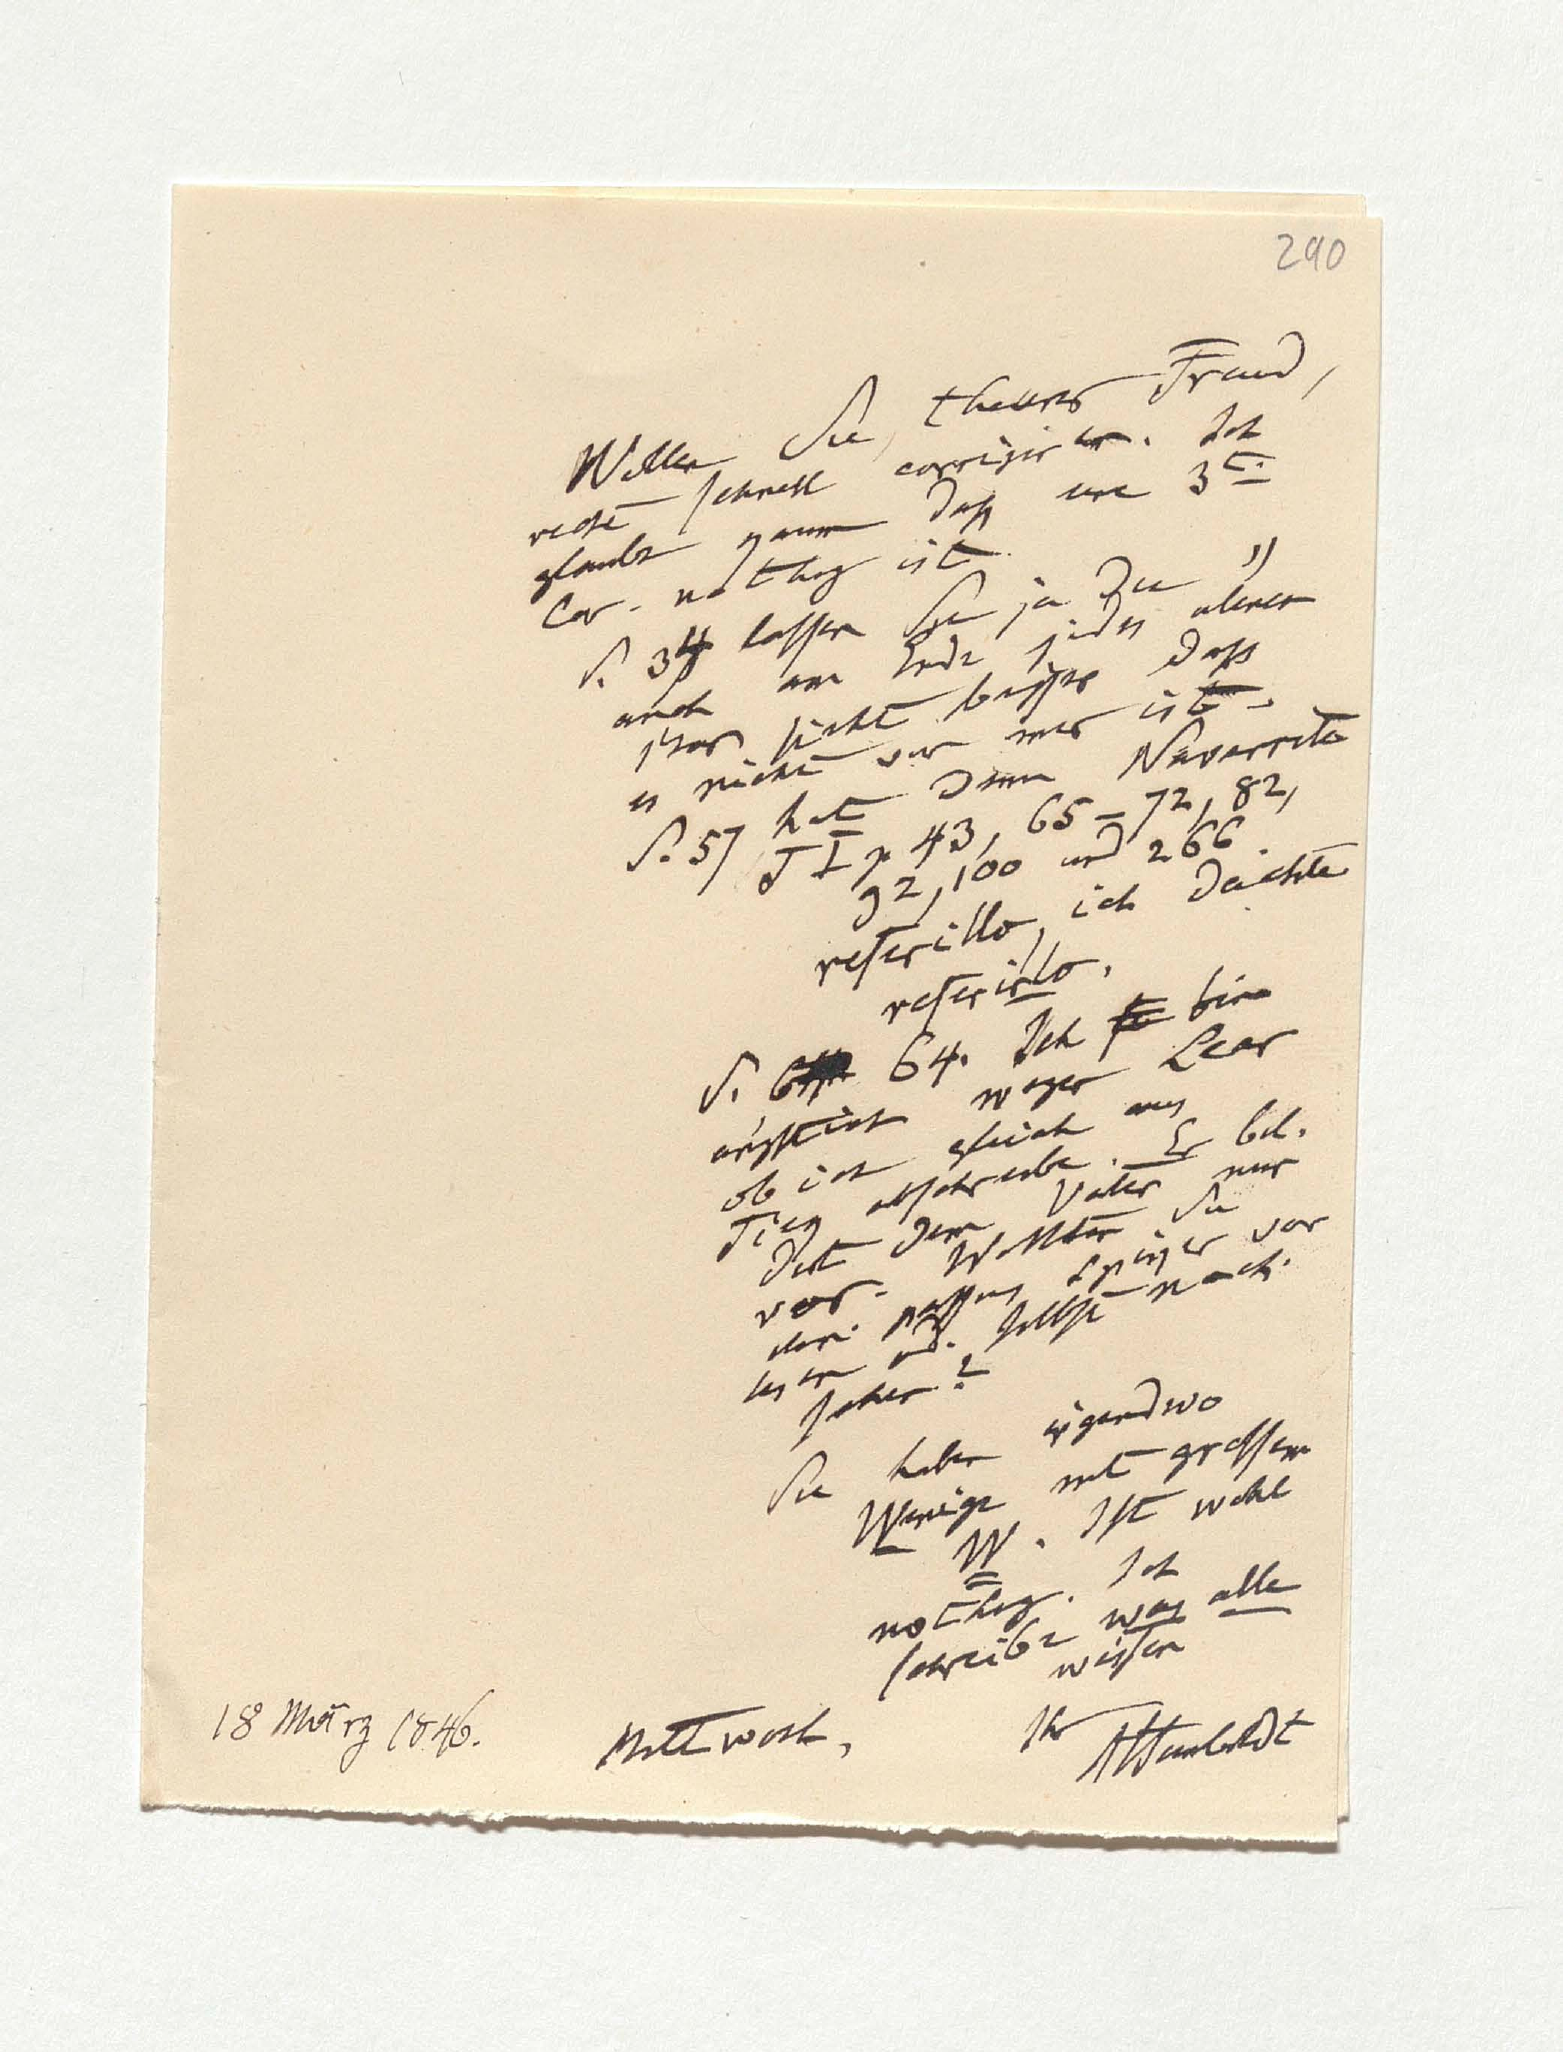 290
Wollen Sie, theurer Freund,
recht schnell corrigiren. Ich
glaube kaum daß eine 3te
Cor. nöthig ist.
S. 34 lassen Sie ja die "
auch am Ende jedes alinea
sieht besser daß
es nicht von mir ist.
S. 57 hat denn Navarrete
T I p 43, 65–72, 82,
92, 100 und 266.
referillo, ich dächte
referirlo.
S. 64. Ich bin
ängstlich wegen Lear
ob ich gleich aus
Tieck abschreibe. Er bil-
det dem Vater nur
vor. Wollten Sie
den passus vor
lesen od. selbst nach-
sehen?
Sie haben irgendwo
Wenige mit grossem
W. Ist wohl
nöthig. Ich
schreibe was alle
wissen
Ihr
18 März 1846. Mittwoch, AHumboldt